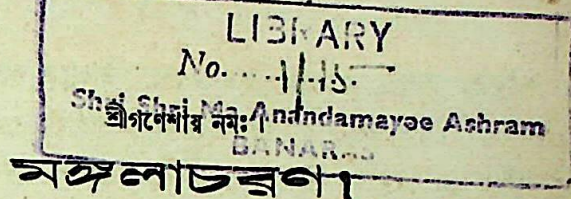 LIBRARY
No. 1/15
Shri Shri Ma Anandamayee Ashram
শ্রীগণেশায় নমঃ।
BANARAS
মঙ্গলাচরণ।